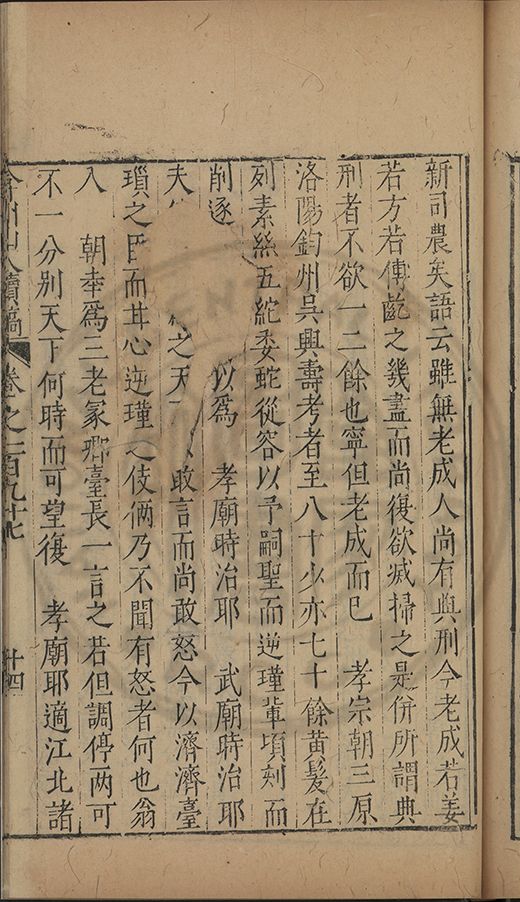 新司農矣語云雖無老成人尚有典刑今老成若姜
若方若傅齕之幾盡而尚復欲滅掃之是併所謂典
刑者不欲一二餘也寧但老成而已　孝宗朝三原
洛陽鈞州吳興壽考者至八十少亦七十餘黃髮在
列素絲五紽委蛇從容以予嗣聖而逆瑾輩頃刻而
削逐　以為　孝廟時治耶　武廟時治耶
夫　之天　敢言而尚敢怒今以濟濟臺
瑣之臣而甘心逆瑾之伎倆乃不聞有怒者何也翁
入　朝幸為三老冢卿臺長一言之若但調停两可
不一分別天下何時而可望復　孝廟耶適江北諸
山人續稿　卷之一百九十七　十四